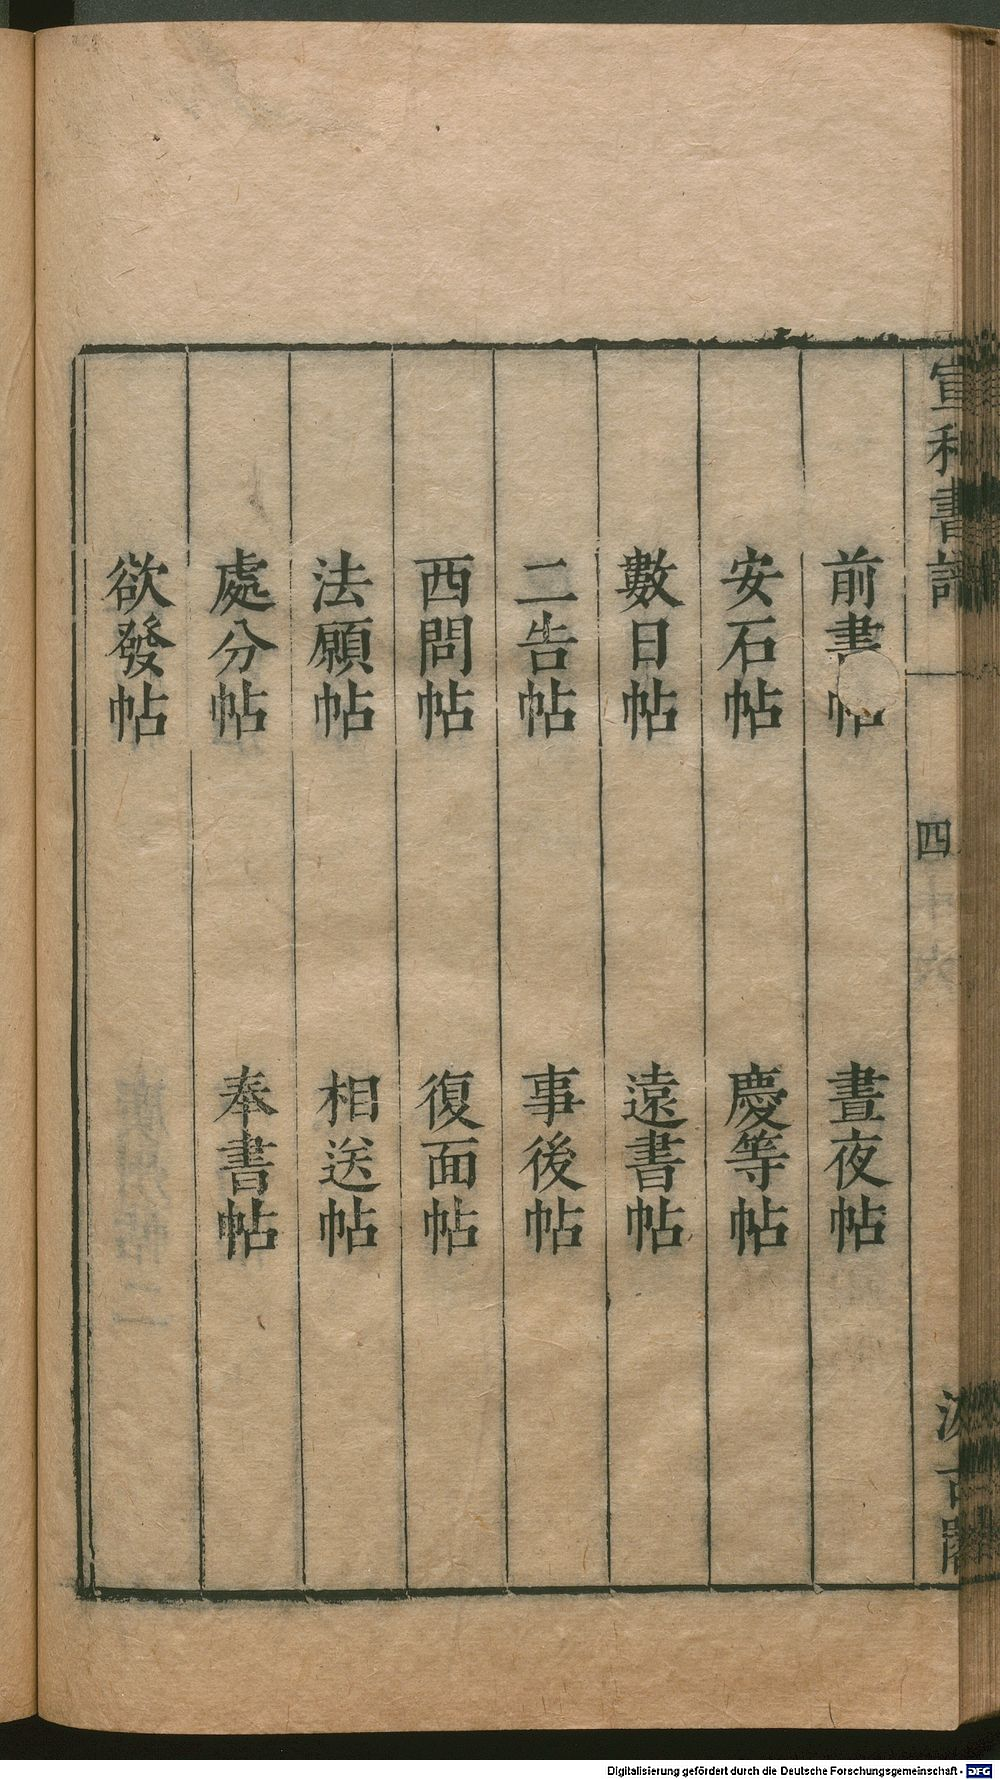 宣和書譜 四 汲古閣
前書帖 晝夜帖
安石帖 慶等帖
數日帖 遠書帖
二告帖 事後帖
西問帖 復面帖
法願帖 相送帖
處分帖 奉書帖
欲發帖
Digitalisierung gefördert durch die Deutsche Forschungsgemeinschaft - DFG